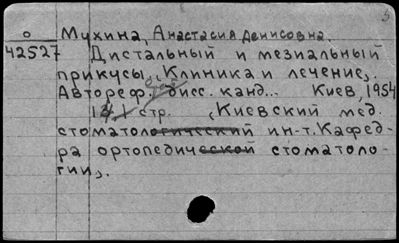 5
o Мухина, Анастасия Денисовна.
42527 Дистальный и мезиальный
прикусы, (Клиника и лечение).
Автореф. дисс. канд... Киев, 1954
стр. (Киевский мед.
стоматологический ин-т. Кафед-
ра ортопедической стоматоло-
гии).